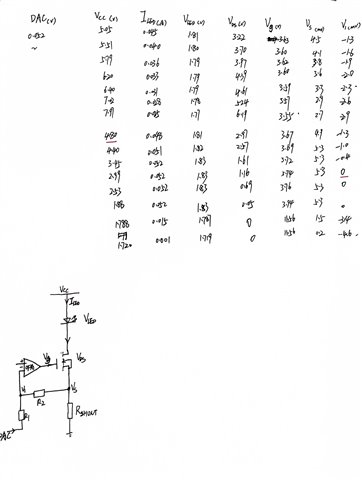 DAC(v) Vcc(v) ILED(A) VLED(v) VDS(v) Vg(v) Vs(mv) V1(mv)
0.052 5.05 0.045 1.81 3.22 3.63 4.5 -1.3
~ 5.51 0.040 1.80 3.70 3.60 4.1 -1.6
5.79 0.036 1.79 3.97 3.62 3.8 -1.9
6.20 0.033 1.79 4.39 3.60 3.6 -2.0
6.40 0.031 1.79 4.61 3.59 3.3 -2.3
7.02 0.028 1.78 5.24 3.57 2.9 -2.6
7.97 0.025 1.77 6.19 3.55 2.7 -2.9
4.80 0.048 1.81 2.97 3.67 4.9 -1.3
4.40 0.051 1.82 2.57 3.69 5.3 -1.0
3.45 0.052 1.83 1.61 3.72 5.3 -0.4
2.99 0.052 1.83 1.16 3.74 5.3 0
2.53 0.052 1.83 0.69 3.76 5.3 0
1.88 0.052 1.83 0.05 3.94 5.3 0
1.788 0.015 1.787 0 11.56 1.5 -3.4
1.720 0.001 1.719 0 11.56 0.2 -4.6
Vcc
ILED
VLED
Vg
VDS
V1
Vs
R2
R1
RSHOUT
DAC